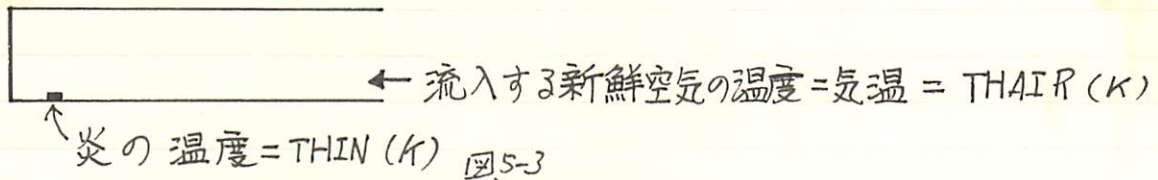 ← 流入する新鮮空気の温度=気温 = THAIR (K)
炎の温度=THIN (K) 図5-3